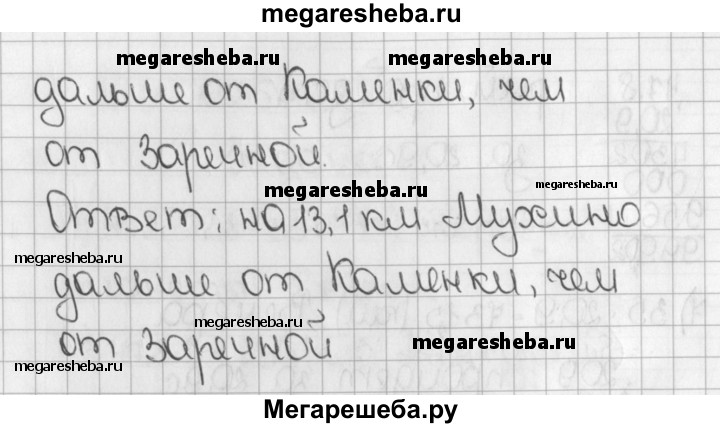 megaresheba.ru
megaresheba.ru megaresheba.ru
дальше от Каменки, чем
от Заречной.
megaresheba.ru megaresheba.ru
Ответ: на 13,1 км Мухино
megaresheba.ru
дальше от Каменки, чем
megaresheba.ru
от Заречной
megaresheba.ru
megaresheba.ru
Мегарешеба.ру